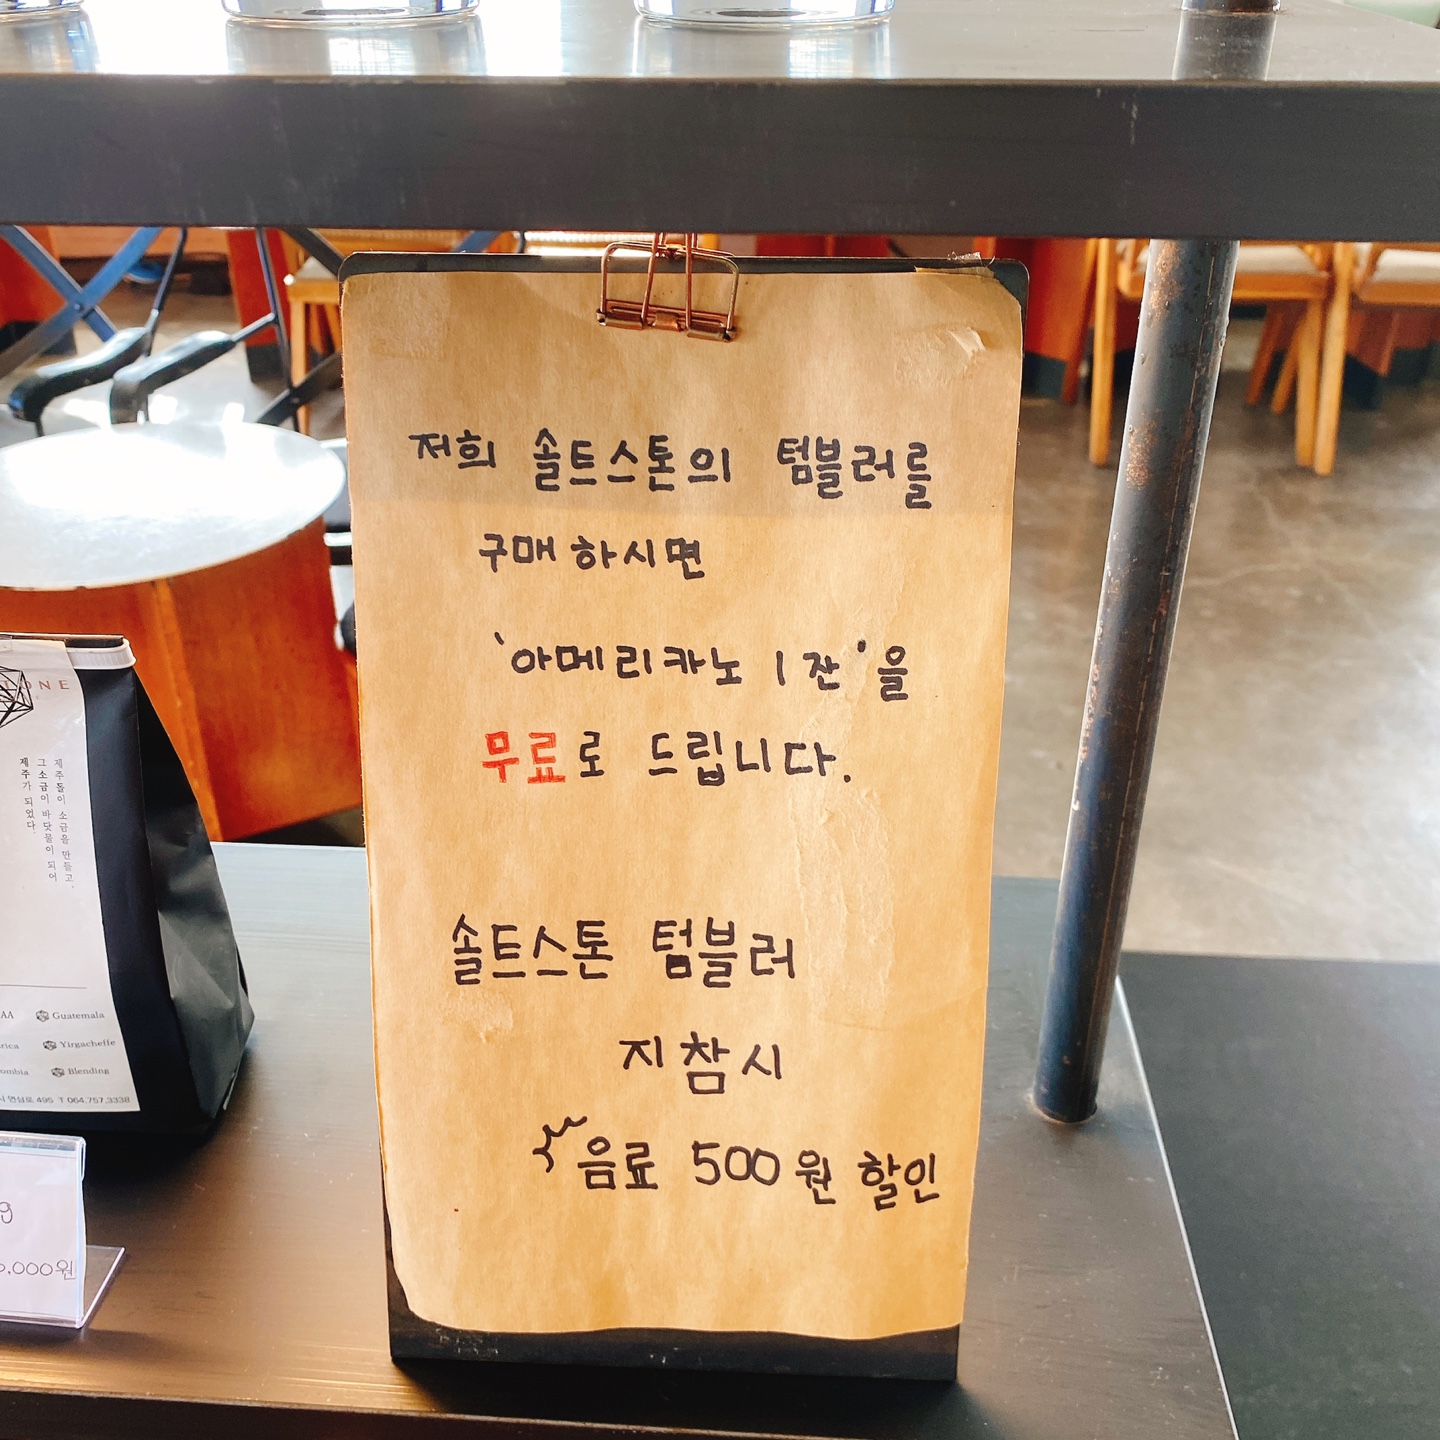 저희 솔트스톤의 텀블러를
구매하시면
'아메리카노 1잔'을
무료로 드립니다.
솔트스톤 텀블러
지참시
음료 500원 할인
TONE
제주돌이 소금을 만들고,
그 소금이 바닷물이 되어
제주가 되었다.
AA
Guatemala
Yirgacheffe
Blending
495 T 064.757.3338
g
,000원